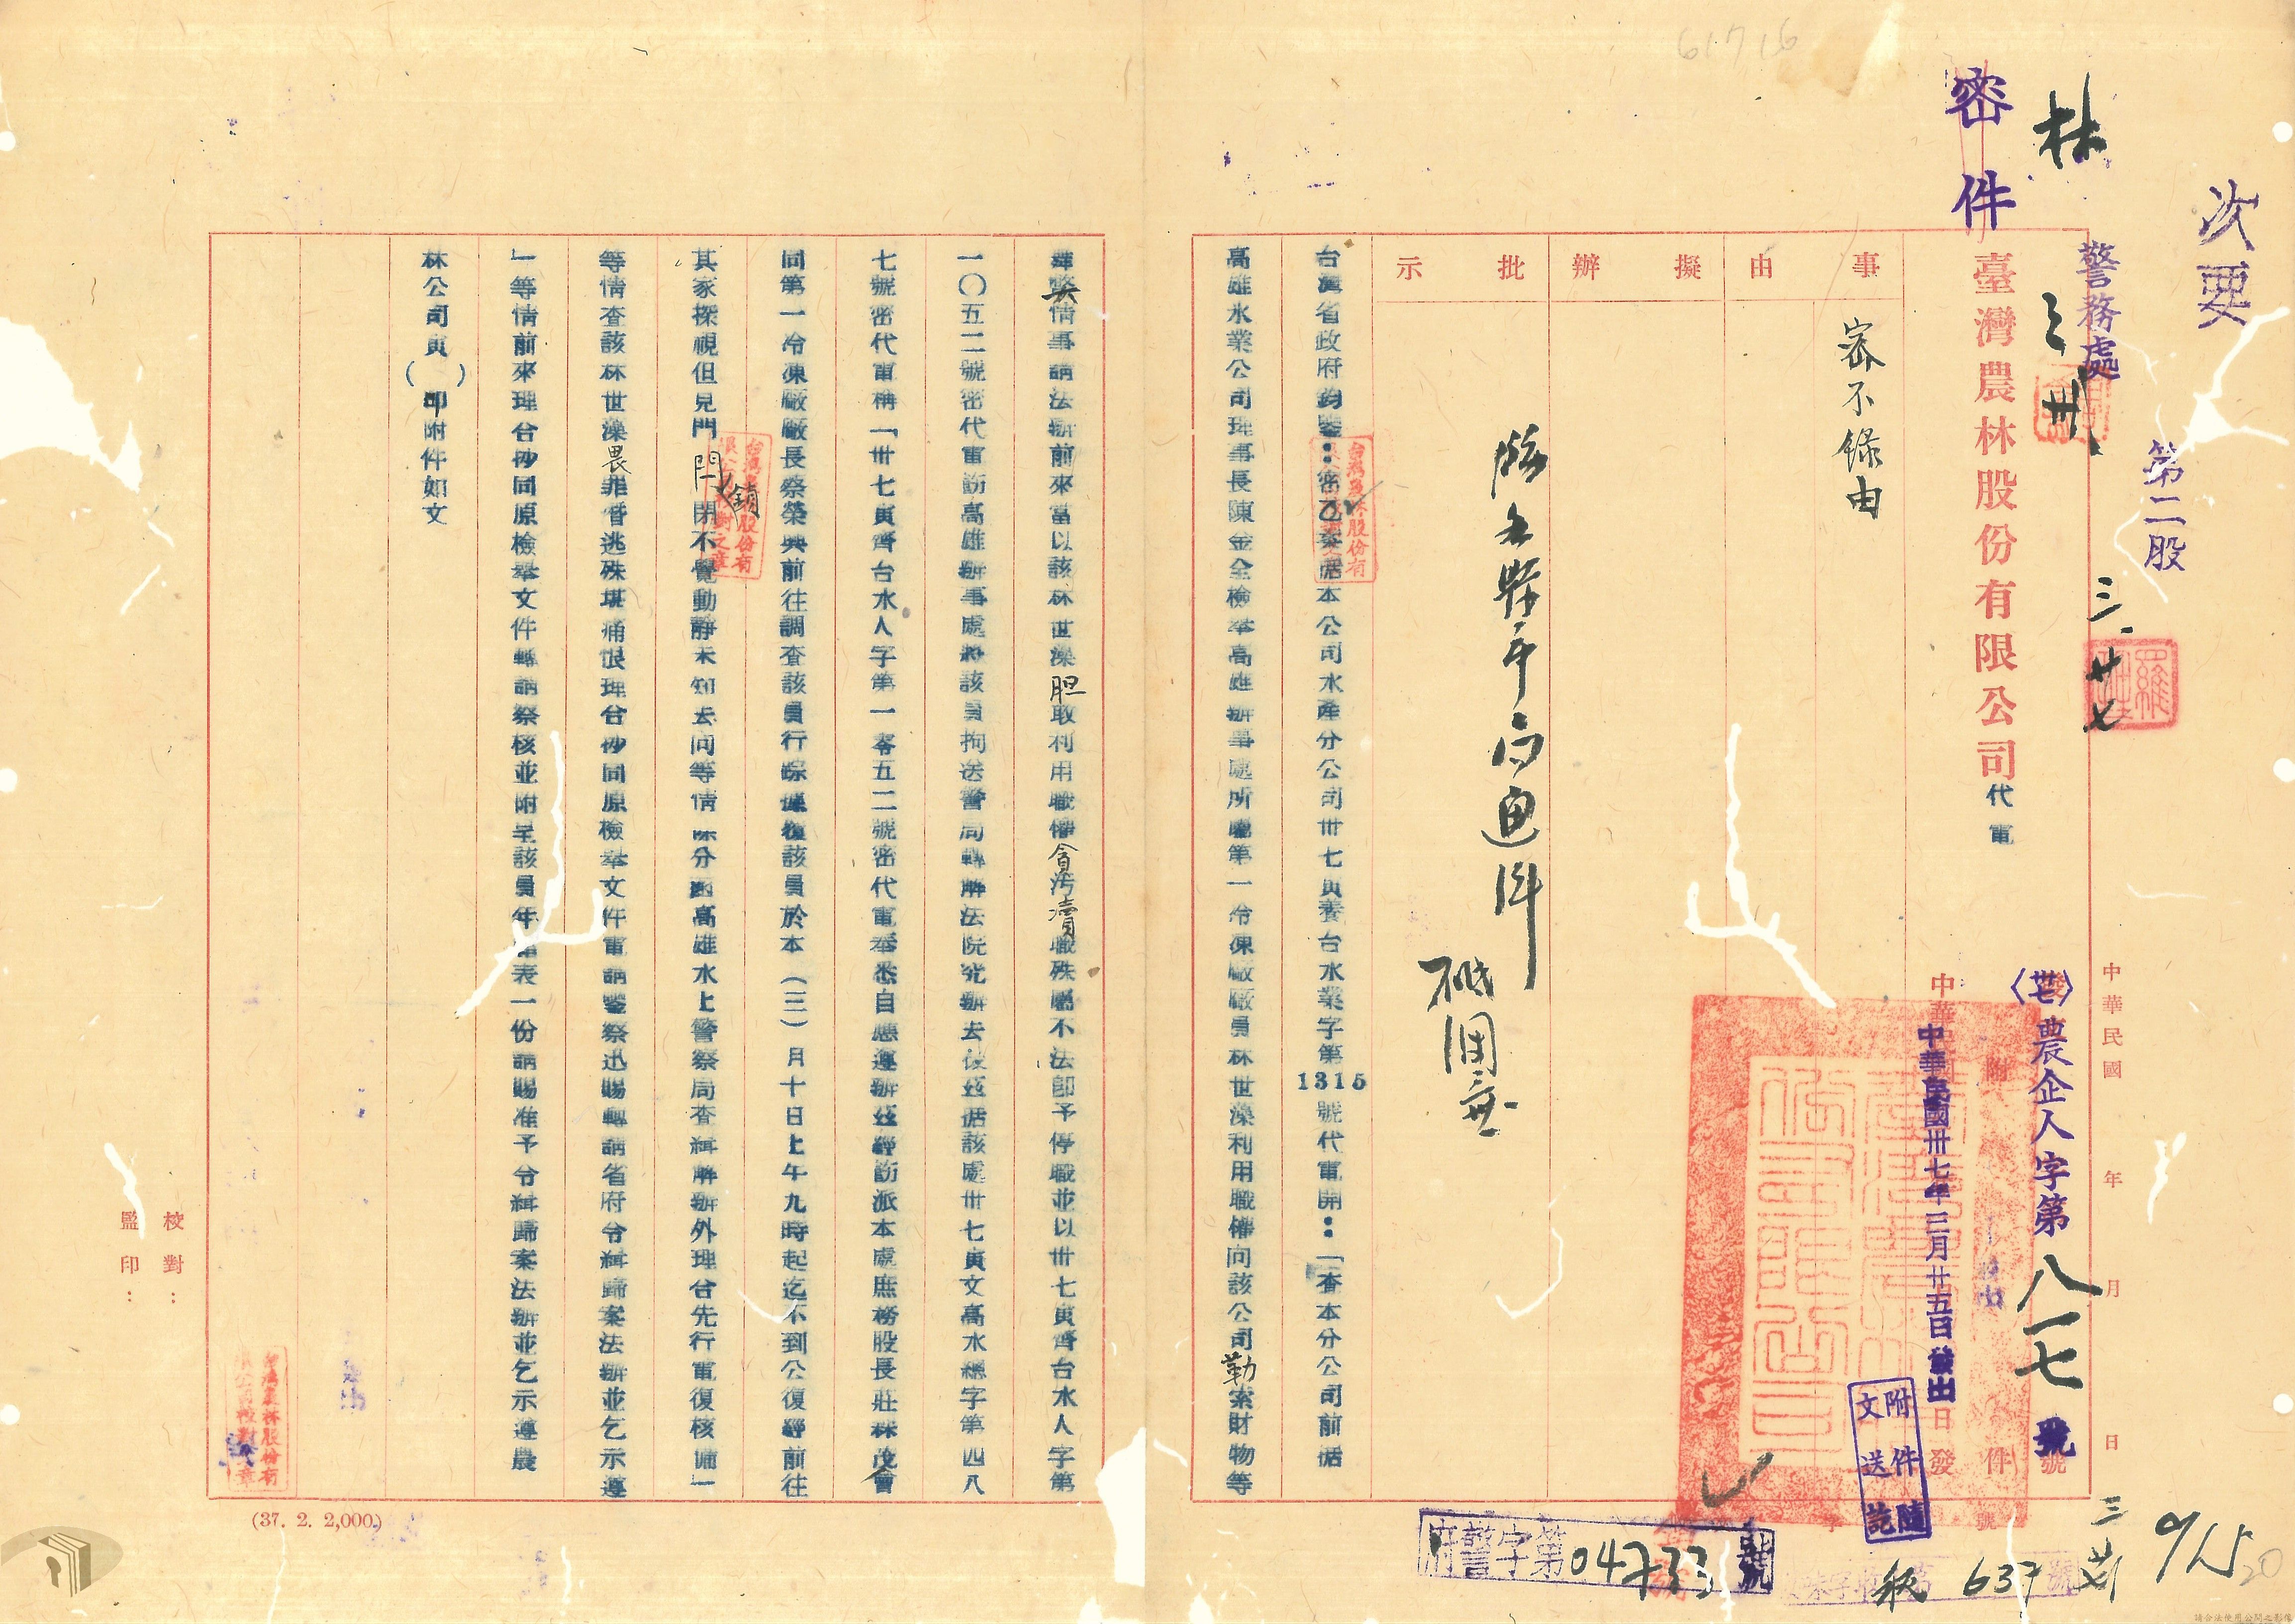 61716
次要
密件
林
警務處
第二股
三.廿七
臺灣農林股份有限公司代電
中華民國 年 月 日
農企人字第八一七號
中華民國卅七年三月廿五日發出
附件隨文送訖
事由
密不錄由
擬辦
批示
台灣省政府鈞鑒：密乙案據本公司水產分公司卅七寅養台水業字第1315號代電開：「查本分公司前據
高雄水業公司理事長陳金全檢舉高雄辦事處所屬第一冷凍廠廠員林世藻利用職權向該公司勒索財物等
情事請法辦前來當以該林世藻胆敢利用職權貪污瀆職殊屬不法卽予停職並以卅七寅齊台水人字第
一〇五二號密代電飭高雄辦事處將該員拘送警局轉解法院究辦去後茲據該處卅七寅文高水總字第四八
七號密代電稱「卅七寅齊台水人字第一零五二號密代電奉悉自應遵辦茲經飭派本處庶務股長莊林茂會
同第一冷凍廠廠長蔡榮興前往調查該員行踪據復該員於本（三）月十日上午九時起迄不到公復經前往
其家探視但見門閂鎖閉不覺動靜未知去向等情除分函高雄水上警察局查緝解辦外理合先行電復核備」
等情查該林世藻畏罪潛逃殊堪痛恨理合抄同原檢舉文件電請鑒察迅賜轉請省府令緝歸案法辦並乞示遵
」等情前來理合抄同原檢舉文件轉請察核並附呈該員年籍表一份請賜准予令緝歸案法辦並乞示遵農
林公司寅（ ）印附件如文
校對：
監印：
(37. 2. 2,000.)
府警字第04733號
637
20